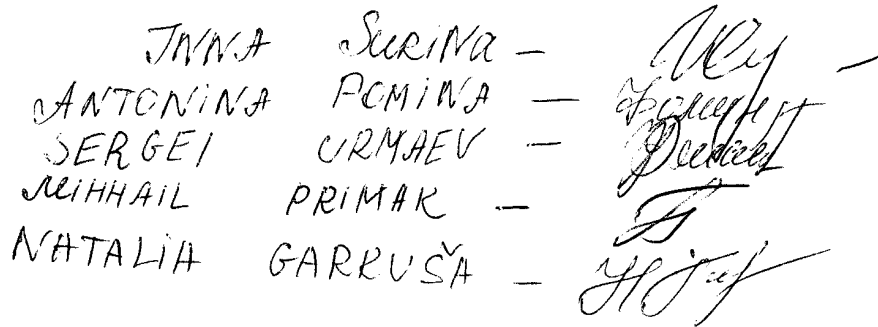 INNA SURINA —
ANTONINA FOMINA —
SERGEI URMAEV —
MIHHAIL PRIMAK —
NATALIA GARKUŠA —